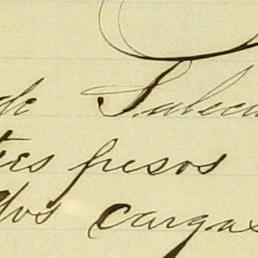 de
tres pesos
dos cargas